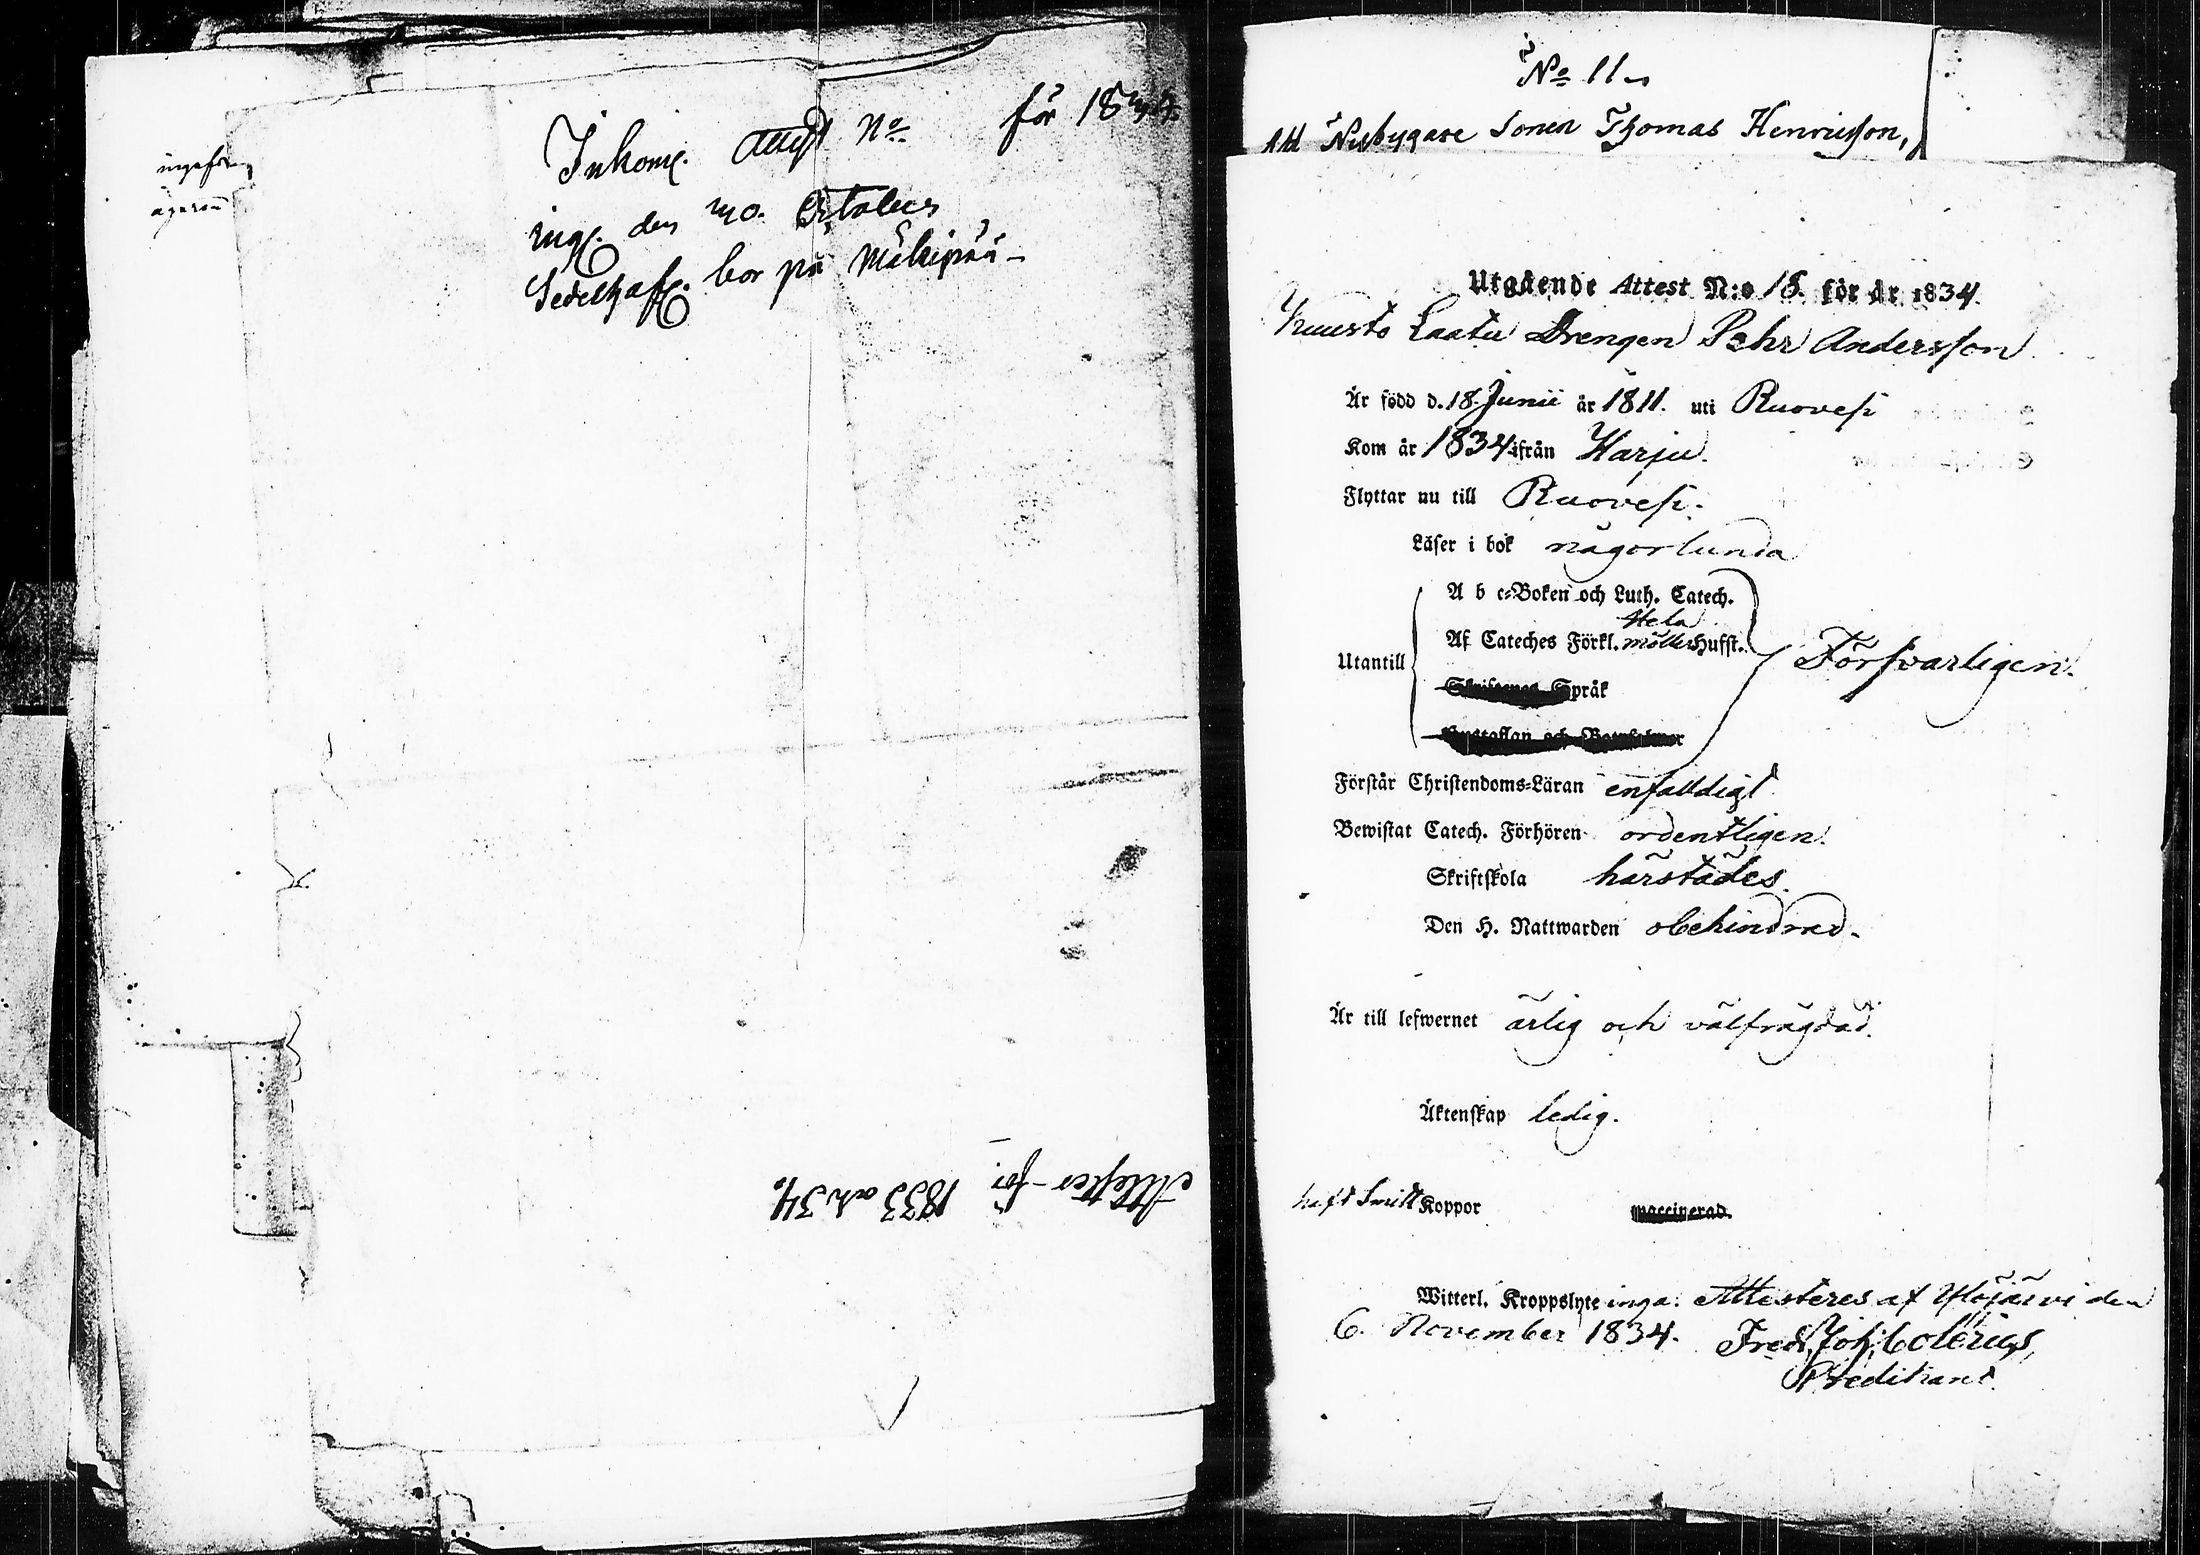 för 18
Inkom. Attest No
ingaf. den
Sedelhaf. bor på Mäkipää
Attester för 1833 och 34.
No 11
Att Nybyggare Sonen Thomas Henricsson,
Utgående Attest N:o 16. för år 1834.
Laatu Drengen Pehr Andersson
Är född d. 18. Junii år 1811. uti Ruovesi
Kom år 1834 ifrån Harju.
Flyttar nu till Ruovesi.
Läser i bok någorlunda
A b c-Boken och Luth. Catech.
Hela
Af Cateches Förkl. Hufst.
Utantill Försvarligen.
Språk
Förstår Christendoms-Läran enfaldigt
Bewistat Catech. Förhören ordentligen.
Skriftskola härstädes.
Den H. Nattwarden obehindrad.
Är till lefwernet ärlig och välfrägdad.
Äktenskap ledig.
haft Smitt Koppor vaccinerad.
Witterl. Kroppslyte inga. Attesteres af Ylöjärvi den
6. November 1834. Fredr. Joh.
Predikant.